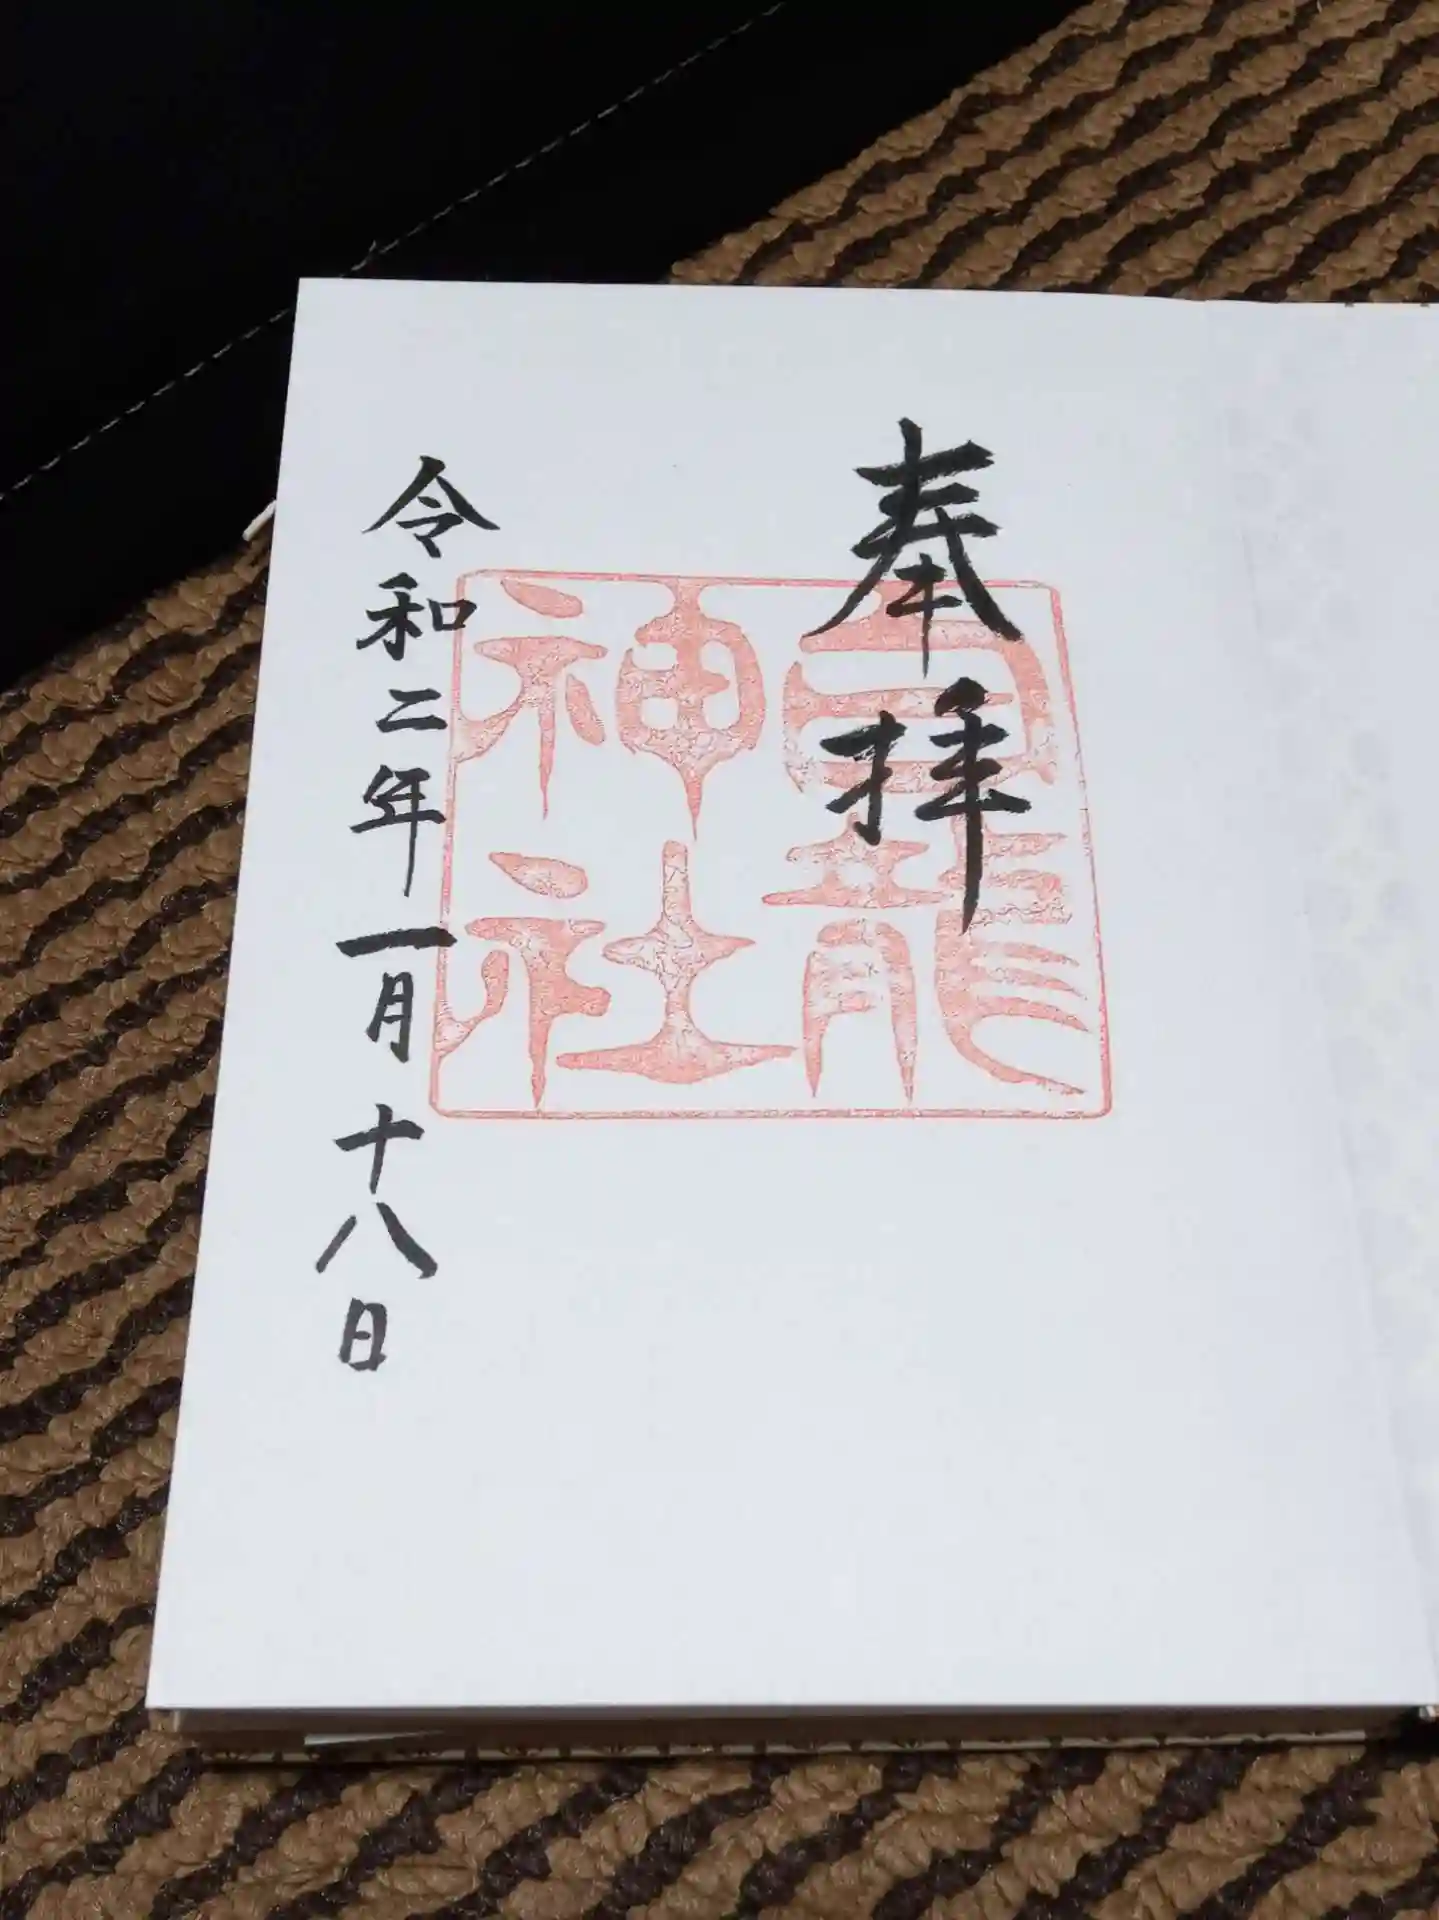 奉拝
白龍
神社
令和二年一月十八日